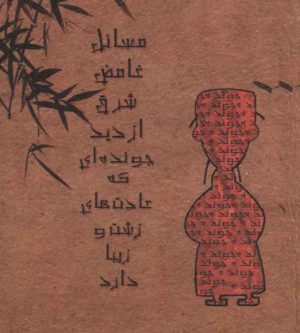 مسائل
غامض
شرق
از دید
جونده‌ای
که
عادت‌های
زشت و
زیبا
دارد